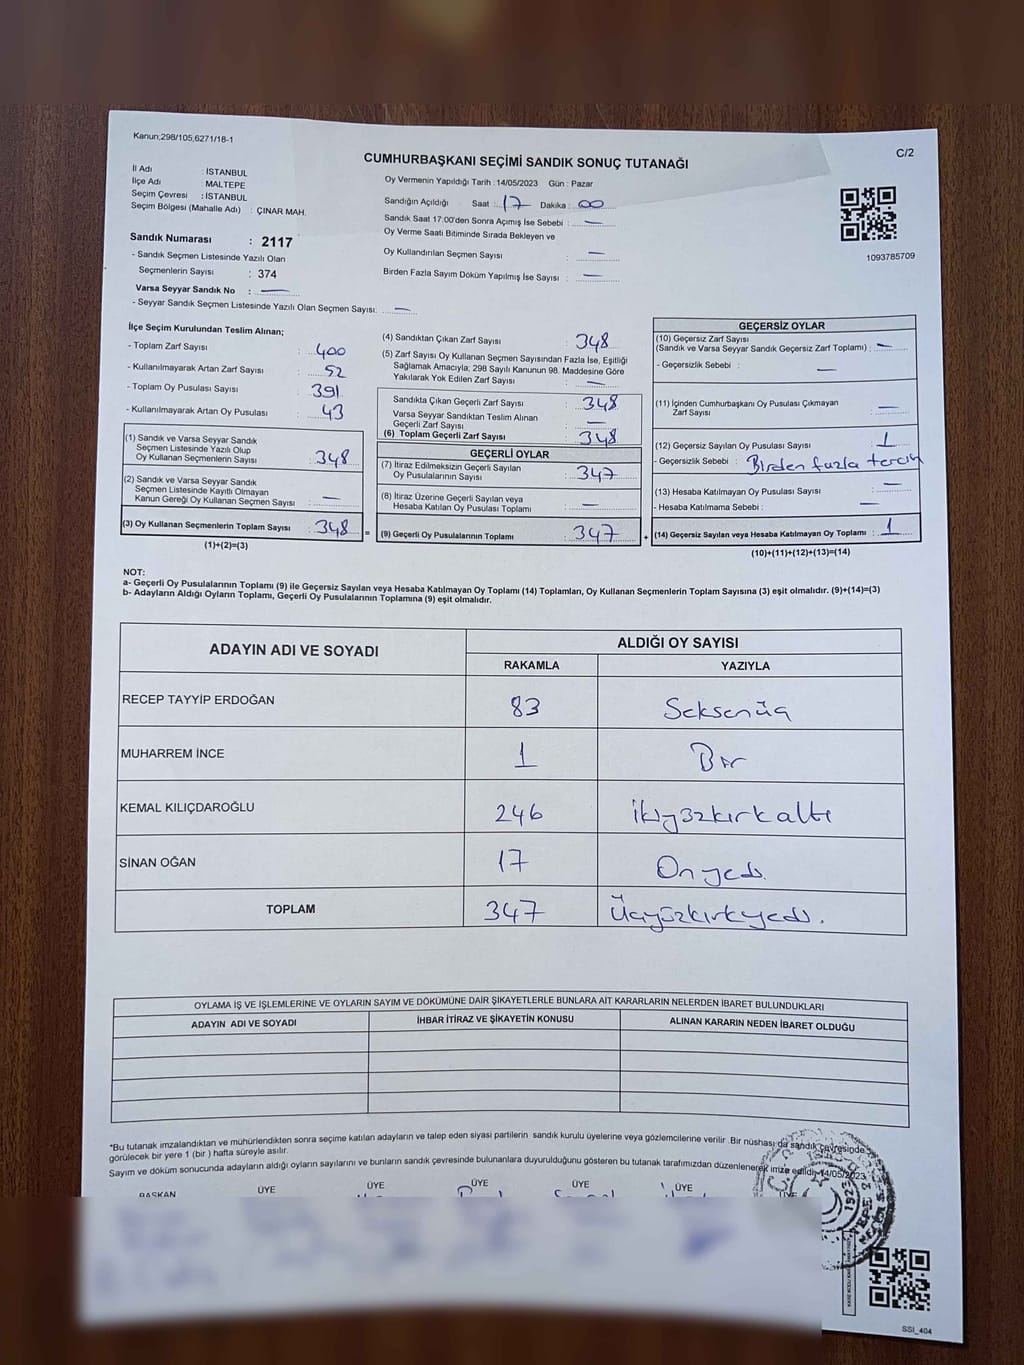 Kanun;298/105,6271/18-1
C/2
CUMHURBAŞKANI SEÇİMİ SANDIK SONUÇ TUTANAĞI
İl Adı : İSTANBUL
İlçe Adı : MALTEPE
Seçim Çevresi : İSTANBUL
Seçim Bölgesi (Mahalle Adı) : ÇINAR MAH.
Oy Vermenin Yapıldığı Tarih :14/05/2023 Gün : Pazar
Sandığın Açıldığı Saat : 17 Dakika : 00
Sandık Saat 17:00'den Sonra Açımış İse Sebebi : —
Oy Verme Saati Bitiminde Sırada Bekleyen ve
Oy Kullandırılan Seçmen Sayısı : —
Birden Fazla Sayım Döküm Yapılmış İse Sayısı : —
1093785709
Sandık Numarası : 2117
- Sandık Seçmen Listesinde Yazılı Olan
Seçmenlerin Sayısı : 374
Varsa Seyyar Sandık No : —
- Seyyar Sandık Seçmen Listesinde Yazılı Olan Seçmen Sayısı: —
İlçe Seçim Kurulundan Teslim Alınan;
- Toplam Zarf Sayısı : 400
- Kullanılmayarak Artan Zarf Sayısı : 52
- Toplam Oy Pusulası Sayısı : 391
- Kullanılmayarak Artan Oy Pusulası : 43
(1) Sandık ve Varsa Seyyar Sandık
Seçmen Listesinde Yazılı Olup
Oy Kullanan Seçmenlerin Sayısı : 348
(2) Sandık ve Varsa Seyyar Sandık
Seçmen Listesinde Kayıtlı Olmayan
Kanun Gereği Oy Kullanan Seçmen Sayısı : —
(3) Oy Kullanan Seçmenlerin Toplam Sayısı : 348 =
(1)+(2)=(3)
(4) Sandıktan Çıkan Zarf Sayısı : 348
(5) Zarf Sayısı Oy Kullanan Seçmen Sayısından Fazla İse, Eşitliği
Sağlamak Amacıyla; 298 Sayılı Kanunun 98. Maddesine Göre
Yakılarak Yok Edilen Zarf Sayısı : —
Sandıkta Çıkan Geçerli Zarf Sayısı : 348
Varsa Seyyar Sandıktan Teslim Alınan
Geçerli Zarf Sayısı : —
(6) Toplam Geçerli Zarf Sayısı : 348
GEÇERLİ OYLAR
(7) İtiraz Edilmeksizin Geçerli Sayılan
Oy Pusulalarının Sayısı : 347
(8) İtiraz Üzerine Geçerli Sayılan veya
Hesaba Katılan Oy Pusulası Toplamı : —
(9) Geçerli Oy Pusulalarının Toplamı : 347 +
GEÇERSİZ OYLAR
(10) Geçersiz Zarf Sayısı
(Sandık ve Varsa Seyyar Sandık Geçersiz Zarf Toplamı) : —
- Geçersizlik Sebebi : —
(11) İçinden Cumhurbaşkanı Oy Pusulası Çıkmayan
Zarf Sayısı : —
(12) Geçersiz Sayılan Oy Pusulası Sayısı : 1
- Geçersizlik Sebebi : Birden fazla tercih
(13) Hesaba Katılmayan Oy Pusulası Sayısı : —
- Hesaba Katılmama Sebebi : —
(14) Geçersiz Sayılan veya Hesaba Katılmayan Oy Toplamı : 1
(10)+(11)+(12)+(13)=(14)
NOT:
a- Geçerli Oy Pusulalarının Toplamı (9) ile Geçersiz Sayılan veya Hesaba Katılmayan Oy Toplamı (14) Toplamları, Oy Kullanan Seçmenlerin Toplam Sayısına (3) eşit olmalıdır. (9)+(14)=(3)
b- Adayların Aldığı Oyların Toplamı, Geçerli Oy Pusulalarının Toplamına (9) eşit olmalıdır.
ADAYIN ADI VE SOYADI ALDIĞI OY SAYISI
RAKAMLA YAZIYLA
RECEP TAYYİP ERDOĞAN 83 Seksenüç
MUHARREM İNCE 1 Bir
KEMAL KILIÇDAROĞLU 246 İkiyüzkırkaltı
SİNAN OĞAN 17 Onyedi
TOPLAM 347 Üçyüzkırkyedi.
OYLAMA İŞ VE İŞLEMLERİNE VE OYLARIN SAYIM VE DÖKÜMÜNE DAİR ŞİKAYETLERLE BUNLARA AİT KARARLARIN NELERDEN İBARET BULUNDUKLARI
ADAYIN ADI VE SOYADI İHBAR İTİRAZ VE ŞİKAYETİN KONUSU ALINAN KARARIN NEDEN İBARET OLDUĞU
*Bu tutanak imzalandıktan ve mühürlendikten sonra seçime katılan adayların ve talep eden siyasi partilerin sandık kurulu üyelerine veya gözlemcilerine verilir .Bir nüshası da sandık çevresinde
görülecek bir yere 1 (bir ) hafta süreyle asılır.
Sayım ve döküm sonucunda adayların aldığı oyların sayılarını ve bunların sandık çevresinde bulunanlara duyurulduğunu gösteren bu tutanak tarafımızdan düzenlenerek imza edildi. 14/05/2023
BAŞKAN ÜYE ÜYE ÜYE ÜYE ÜYE ÜYE
1923
SSİ_404